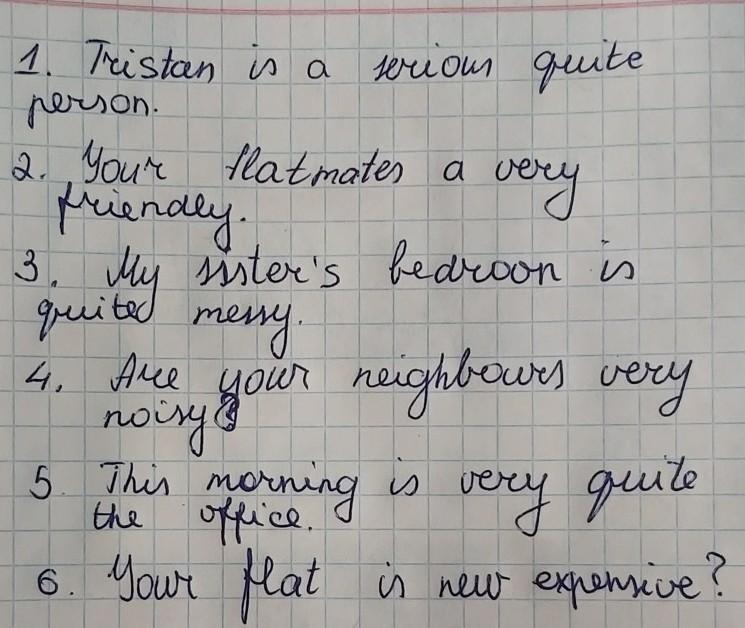 1. Tristan is a serious quite
person.
2. Your flatmates a very
friendly.
3. My sister's bedroon is
quited messy.
4. Are your neighbours very
noisy?
5. This morning is very quite
the office.
6. Your flat is new expensive?